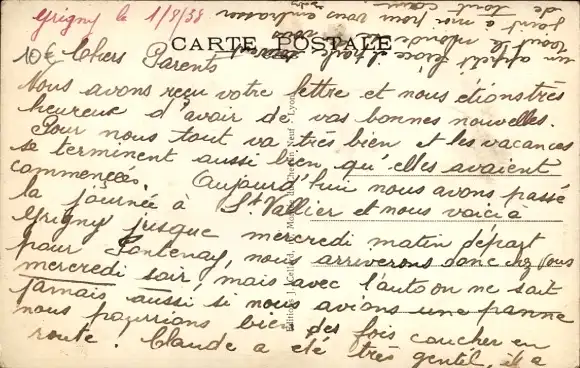 Grigny le 1/8/38
CARTE POSTALE
10€ Chers Parents
Nous avons reçu votre lettre et nous étions très
heureux d'avoir de vos bonnes nouvelles.
Pour nous tout va très bien et les vacances
se terminent aussi bien qu'elles avaient
commencées. Aujourd'hui nous avons passé
la journée à St Vallier et nous voici a
Grigny jusque mercredi matin départ
pour Fontenay, nous arriverons donc chez vous
mercredi soir, mais avec l'auto on ne sait
jamais aussi si nous avions une panne
nous pourrions bien des fois coucher en
route. Claude a été très gentil, il a
un appétit féroce et
tout le monde se
joint à moi pour vous embrasser
de tout cœur
Editions J. Cellard, Lyon